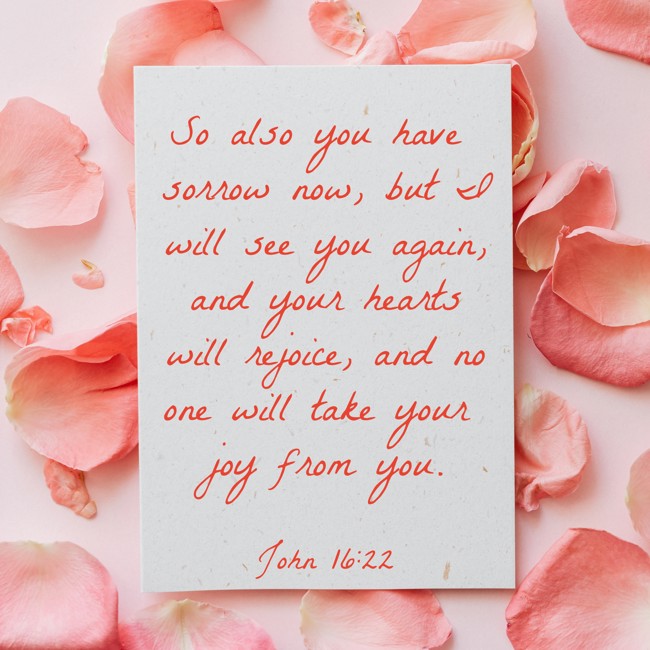 So also you have
sorrow now, but I
will see you again,
and your hearts
will rejoice, and no
one will take your
joy from you.
John 16:22